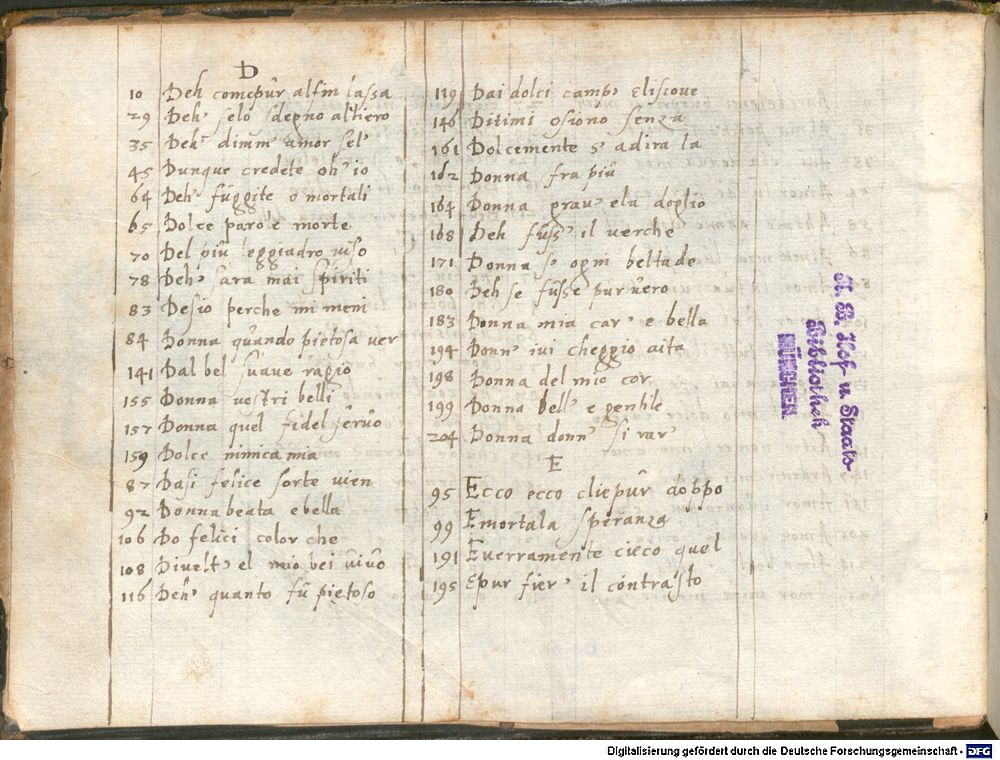 D
10 Deh comepur alfin lassa
29 Deh' selo sdegno altiero
35 Deh' dimm' amor sel'
45 Dunque credete oh' io
64 Deh' fuggite o mortali
65 Dolce parol'e morte
70 Del piu leggiadro viso
78 Deh' sara mai spiriti
83 Desio perche mi meni
84 Donna quando pietosa ver
141 Dal bel suave ragio
155 Donna vostri belli
157 Donna quel fidel servo
159 Dolce nimica mia
87 Dasi felice sorte vien
92 Donna beata e bella
106 Do felici color che
108 Divelt' el mio bei vivo
116 Deh' quanto fu pietoso
119 Dai dolci camp' Elisi ove
146 Ditimi o si o no senza
161 Dolcemente s' adira la
162 Donna fra piu
164 Donna grav' e la doglio
168 Deh fuss' il verche
171 Donna s' ogni beltade
180 Deh se fusse pur vero
183 Donna mia car' e bella
194 Donn' ivi cheggio aita
198 Donna del mio cor
199 Donna bell' e gentile
204 Donna donn' si rar'
E
95 Ecco ecco cliepur doppo
99 E mortala speranza
191 E verramente cieco quel
195 E pur fier' il contrasto
K. B. Hof- u. Staats-
Bibliothek
MÜNCHEN.
Digitalisierung gefördert durch die Deutsche Forschungsgemeinschaft - DFG